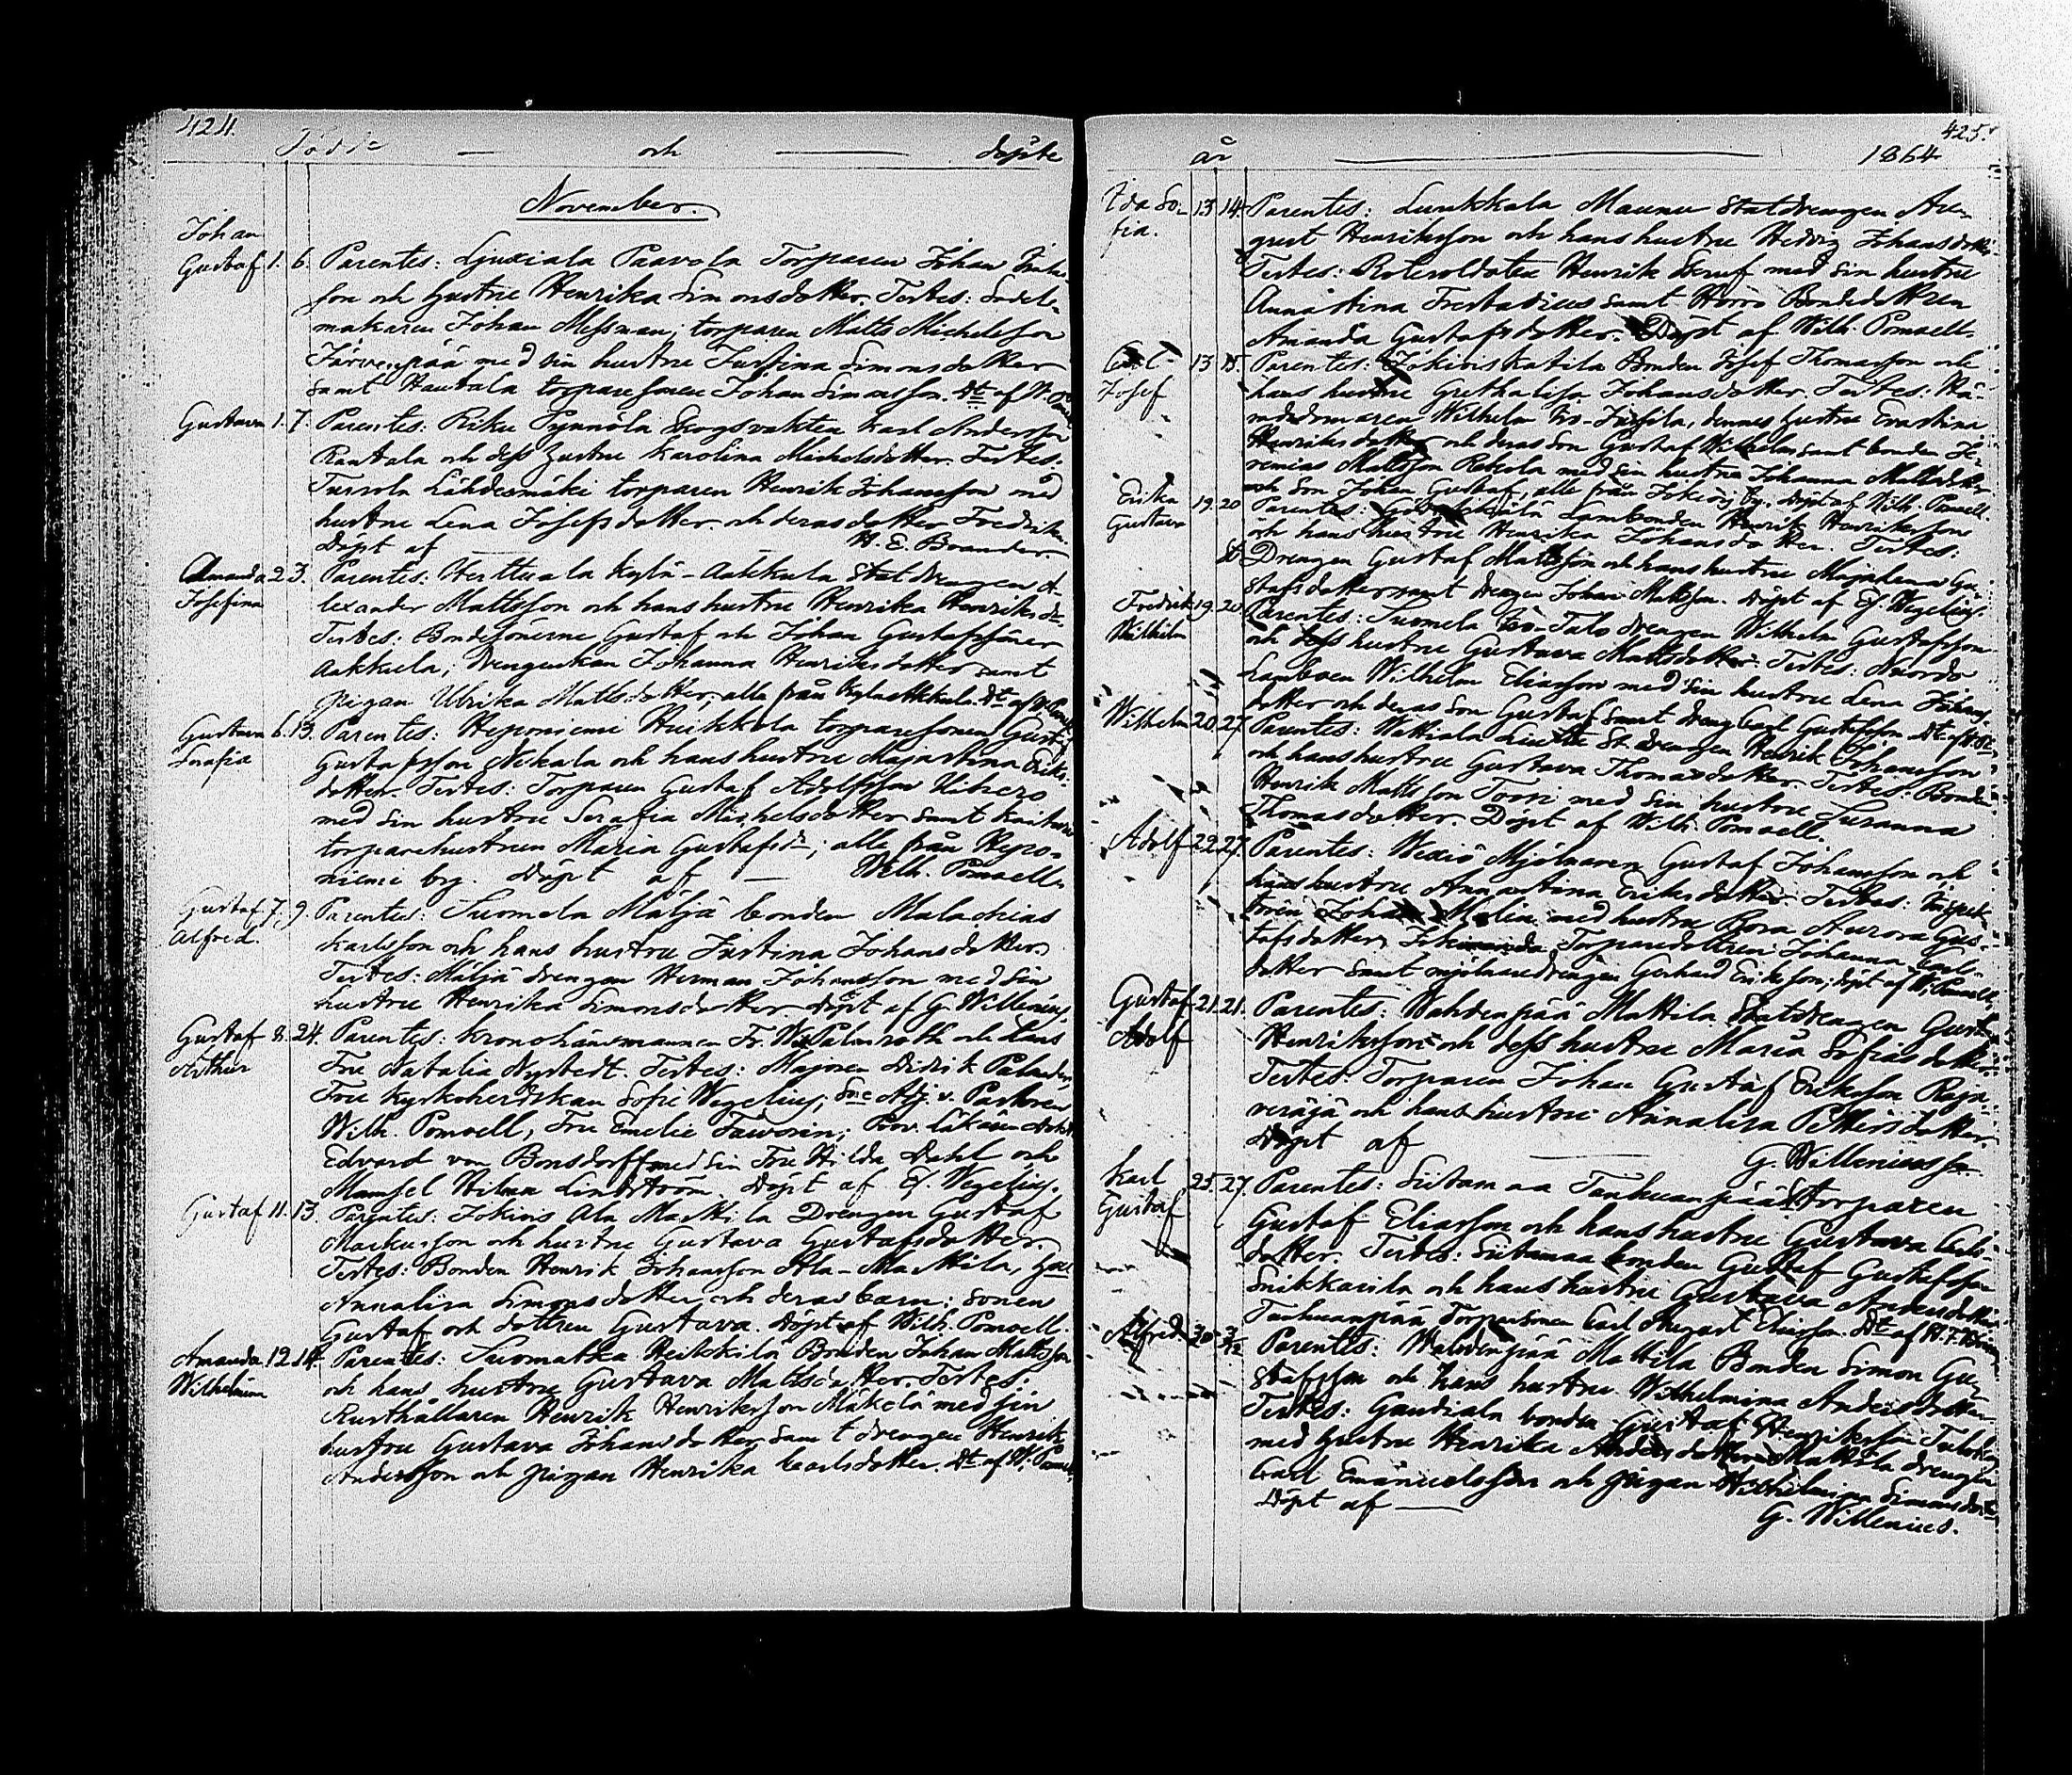 424.
Födde — och — döpte
November.
Johan
Gustaf 1. 6. Parentes: Ljuxiala Paavola Torparen Johan
son och hustru Henrika Simonsdotter. Testes: Sadel-
makaren Johan Messman; torparen Matts Michelsson
Järvenpää med sin hustru Justina Simonsdotter
samt Hautala torparesonen Johan Simonsson. Dt af W.
Gustava 1. 7. Parentes: Riku Pynnölä Skogsvakten Karl Andersson
Rantala och dess hustru Karolina Michelsdotter. Testes:
Tursola Lähdesmäki torparen Henrik Johansson med
hustru Lena Josefsdotter och deras dotter Fredrika
Döpt af — H. E. Brander
Amanda 2. 3. Parentes: Herttuala Kylä-Aakkula Statdrengen A-
Josefina lexander Mattsson och hans hustru Henrika Henriksdr
Testes: Bondesönerne Gustaf och Johan Gustafssöner
Aakkula; Drengenkan Johanna Henriksdotter samt
pigan Ulrika Mattsdotter, alla från Kylä Akkula. Dt af W.
Gustava 6. 13. Parentes: Heponiemi Heikkola torparesonen Gustaf
Serafia Gustafsson Nekala och hans hustru Majastina Eriks-
dotter. Testes: Torparen Gustaf Adolfsson
med sin hustru Serafia Michelsdotter samt
torparehustrun Maria Gustafsdr; alla från Hepo-
niemi by. Döpt af — Wilh. Pomoell
Gustaf 7. 9. Parentes: Suomela Mäljä bonden Malachias
Alfred. Karlsson och hans hustru Justina Johansdotter.
Testes: Mäljä drengen Herman Johansson med sin
hustru Henrika Simonsdotter. Döpt af G. Willenius.
Gustaf 8. 24. Parentes: Kronolänsmannen Fr. W. Palmroth och hans
Arthur Fru Natalia Nystedt. Testes: Majoren Didrik Palander
Fru Kyrkoherdskan Sofie Wegelius; Sne Adj. v. Pastoren
Wilh. Pomoell, Fru Emelie Faworin; Prov. läkaren
Edvard von Bonsdorff med sin Fru Hilda Dahl och
Mamsel Hilma Lindström. Döpt af E. Wegelius.
Gustaf 11. 13. Parentes: Jokiois Ala Mattila Drengen Gustaf
Markusson och hustru Gustava Gustafsdotter.
Testes: Bonden Henrik Johansson Ala-Mattila,
Annalisa Simonsdotter och deras barn: sonen
Gustaf och dottren Gustava. Döpt af Wilh. Pomoell.
Amanda 12. 14. Parentes: Suomatka Heikkilä Bonden Johan Mattsson
Wilhelmina och hans hustru Gustava Mattsdotter. Testes:
Rusthållaren Henrik Henriksson Mäkelä med sin
hustru Gustava Johansdotter samt drengen Henrik
Andersson och pigan Henrika Carlsdotter. Dt af W.
425.
år — 1864
Ida So- 13 14 Parentes: Lunkkala Maunu Statdrengen Au-
fia. gust Henriksson och hans hustru Hedvig Johansdotter
Testes: Rotesoldaten Henrik Skruf med sin hustru
Annastina Frestadius samt Bondedottren
Amanda Gustafsdotter. Döpt af Wilh. Pomoell.
Carl 13 15. Parentes: Jokiois Katila Bonden Josef Thomasson och
Josef hans hustru Gretha Lisa Johansdotter. Testes: Nä-
mndemannen Wilhelm dennes hustru Evastina
Henriksdotter och deras son Gustaf Wilhelm samt bonden Je-
remias Mattsson Rekola med sin hustru Johanna Mattsdotter
och son Johan Gustaf, alla från Jokiois by. Döpt af Wilh. Pomoell.
Erika 19. 20 Parentes: Lambonden Henrik Henriksson
Gustava och hans hustru Henrika Johansdotter. Testes:
Drengen Gustaf Mattsson och hans hustru Majalena Gu-
stafsdotter samt Drengen Johan Mattsson. Döpt af E. Wegelius.
Fredrik 19. 20 Parentes: Suomela Iso-Talo drengen Wilhelm Gustafsson
Wilhelm och dess hustru Gustava Mattsdotter. Testes:
Wilhelm Eliasson med sin hustru Lena Johans-
dotter och deras son Gustaf samt dreng Carl Gustafsson
Wilhelm 20. 27. Parentes: Wäkiala drengen Henrik Johansson
och hans hustru Gustava Thomasdotter. Testes: Bonden
Henrik Mattsson Toori med sin hustru Susanna
Thomasdotter. Döpt af Wilh. Pomoell.
Adolf 22. 27. Parentes: Wexiö Mjölnaren Gustaf Johansson och
hans hustru Annastina Eriksdotter. Testes: Inspek-
toren Johan Molin med hustru Rosa Aurora Gus-
tafsdotter, Torparedottren Johanna Carls-
dotter samt mjölnaredrengen Gerhard Eriksson; döpt af W. Pomoell
Gustaf 21. 21. Parentes: Wahdenpää Mattila Statdrengen Gustaf
Adolf Henriksson och dess hustru Maria Sofiasdotter.
Testes: Torparen Johan Gustaf Eriksson Raja-
veräjä och hans hustru Annalisa Pettersdotter
Döpt af — G. Willenius
Karl 25. 27. Parentes: Siitamaa Tankuanpää torparen
Gustaf Gustaf Eliasson och hans hustru Gustava Carls-
dotter. Testes: Siitamaa bonden Gustaf Gustafsson
Snikkarila och hans hustru Gustava Andersdotter
Tankuanpää Torparesonen Carl August Eliasson. Dt af
Alfred 30. 3/12 Parentes: Wahdenpää Mattila Bonden Simon Gu-
stafsson och hans hustru Wilhelmina Andersdotter
Testes: Gaudiala bonden Gustaf Henriksson
med hustru Henrika Andersdotter Mattila drengen
Carl Emanuelsson och pigan Wilhelmina Simonsdotter
Döpt af — G. Willenius.